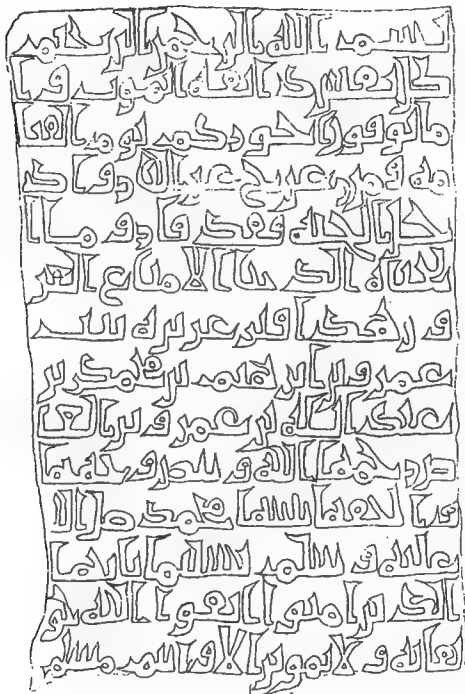 بسم الله الرحمن الرحيم
كل نفس ذائقة الموت وانـ
ما توفون اجوركم يوم القيا
مة فمن زحزح عن النار واد
خل الجنة فقد فاز وما ا
لحياة الدنيا الا متاع الغر
ور هذا قبر عزيزة بنت
عمرو بن ابرهيم بن محمد بن
عبد الله بن عمرو بن العا
ص رحمها الله و وجهها
والحقها بنبيها محمد صلى الله
عليه وسلم تسليما يايها
الذين امنوا اتقوا الله حق
تقاته ولا تموتن الا وانتم مسلم